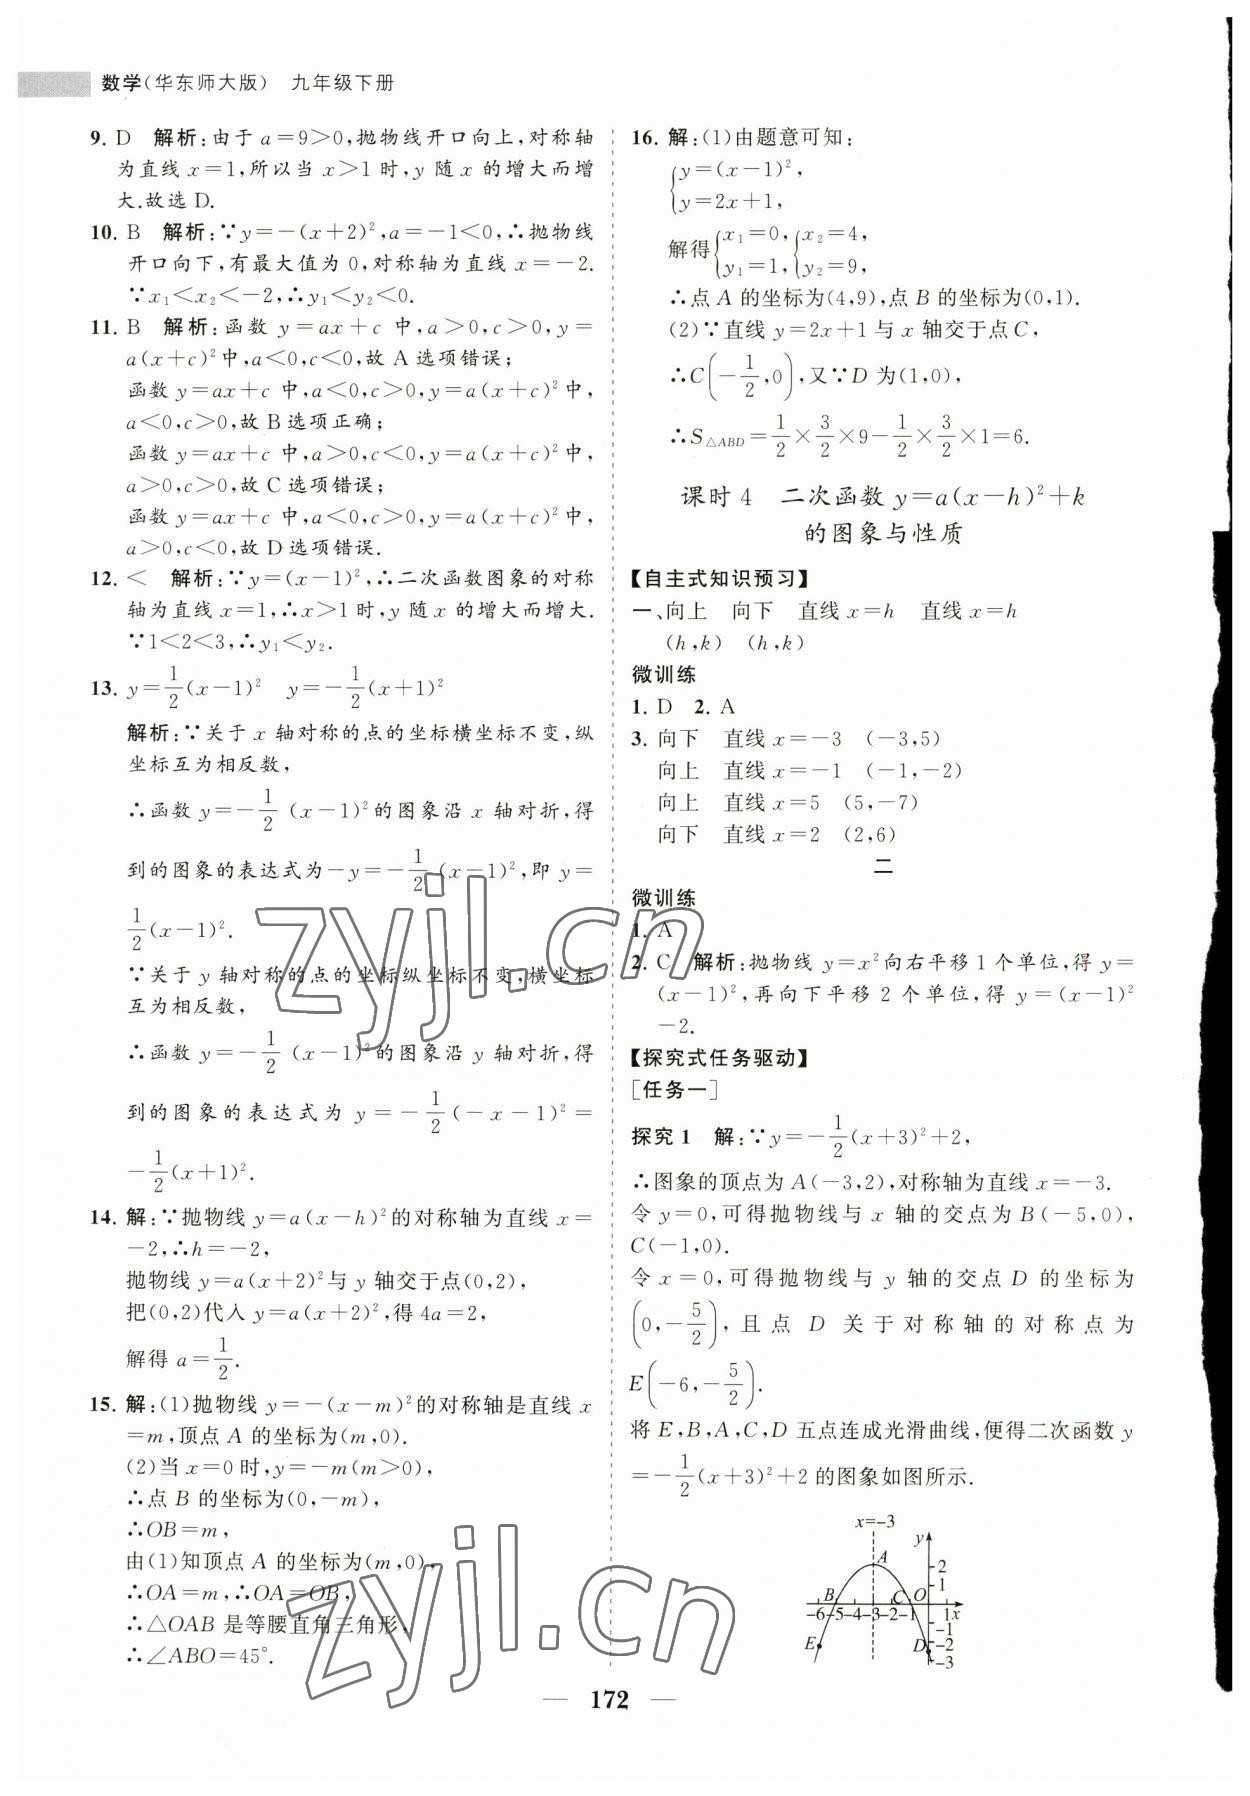 数学(华东师大版) 九年级下册
9. D 解析:由于 a=9>0,抛物线开口向上,对称轴
为直线 x=1,所以当 x>1 时,y 随 x 的增大而增
大.故选 D.
10. B 解析:∵y=-(x+2)²,a=-1<0,∴抛物线
开口向下,有最大值为 0,对称轴为直线 x=-2.
∵x₁<x₂<-2,∴y₁<y₂<0.
11. B 解析:函数 y=ax+c 中,a>0,c>0,y=
a(x+c)²中,a<0,c<0,故 A 选项错误;
函数 y=ax+c 中,a<0,c>0,y=a(x+c)²中,
a<0,c>0,故 B 选项正确;
函数 y=ax+c 中,a>0,c<0,y=a(x+c)²中,
a>0,c>0,故 C 选项错误;
函数 y=ax+c 中,a<0,c>0,y=a(x+c)²中,
a>0,c<0,故 D 选项错误.
12. < 解析:∵y=(x-1)²,∴二次函数图象的对称
轴为直线 x=1,∴x>1 时,y 随 x 的增大而增大.
∵1<2<3,∴y₁<y₂.
13. y=1/2(x-1)² y=-1/2(x+1)²
解析:∵关于 x 轴对称的点的坐标横坐标不变,纵
坐标互为相反数,
∴函数 y=-1/2(x-1)²的图象沿 x 轴对折,得
到的图象的表达式为-y=-1/2(x-1)²,即 y=
1/2(x-1)².
∵关于 y 轴对称的点的坐标纵坐标不变,横坐标
互为相反数,
∴函数 y=-1/2(x-1)²的图象沿 y 轴对折,得
到的图象的表达式为 y=-1/2(-x-1)²=
-1/2(x+1)².
14. 解:∵抛物线 y=a(x-h)²的对称轴为直线 x=
-2,∴h=-2,
抛物线 y=a(x+2)²与 y 轴交于点(0,2),
把(0,2)代入 y=a(x+2)²,得 4a=2,
解得 a=1/2.
15. 解:(1)抛物线 y=-(x-m)²的对称轴是直线 x
=m,顶点 A 的坐标为(m,0).
(2)当 x=0 时,y=-m(m>0),
∴点 B 的坐标为(0,-m),
∴OB=m,
由(1)知顶点 A 的坐标为(m,0),
∴OA=m,∴OA=OB,
∴△OAB 是等腰直角三角形,
∴∠ABO=45°.
16. 解:(1)由题意可知:
{y=(x-1)²,
y=2x+1,
解得{x₁=0, {x₂=4,
y₁=1, y₂=9,
∴点 A 的坐标为(4,9),点 B 的坐标为(0,1).
(2)∵直线 y=2x+1 与 x 轴交于点 C,
∴C(-1/2,0),又∵D 为(1,0),
∴S△ABD=1/2×3/2×9-1/2×3/2×1=6.
课时 4 二次函数 y=a(x-h)²+k
的图象与性质
【自主式知识预习】
一、向上 向下 直线 x=h 直线 x=h
(h,k) (h,k)
微训练
1. D 2. A
3. 向下 直线 x=-3 (-3,5)
向上 直线 x=-1 (-1,-2)
向上 直线 x=5 (5,-7)
向下 直线 x=2 (2,6)
二
微训练
1. A
2. C 解析:抛物线 y=x²向右平移 1 个单位,得 y=
(x-1)²,再向下平移 2 个单位,得 y=(x-1)²
-2.
【探究式任务驱动】
[任务一]
探究 1 解:∵y=-1/2(x+3)²+2,
∴图象的顶点为 A(-3,2),对称轴为直线 x=-3.
令 y=0,可得抛物线与 x 轴的交点为 B(-5,0),
C(-1,0).
令 x=0,可得抛物线与 y 轴的交点 D 的坐标为
(0,-5/2),且点 D 关于对称轴的对称点为
E(-6,-5/2).
将 E,B,A,C,D 五点连成光滑曲线,便得二次函数 y
=-1/2(x+3)²+2 的图象如图所示.
x=-3
y
A
2
1
B C O
-6-5-4-3-2-1 1 x
-1
E D -2
-3
zyjl.cn
zyjl.cn
— 172 —